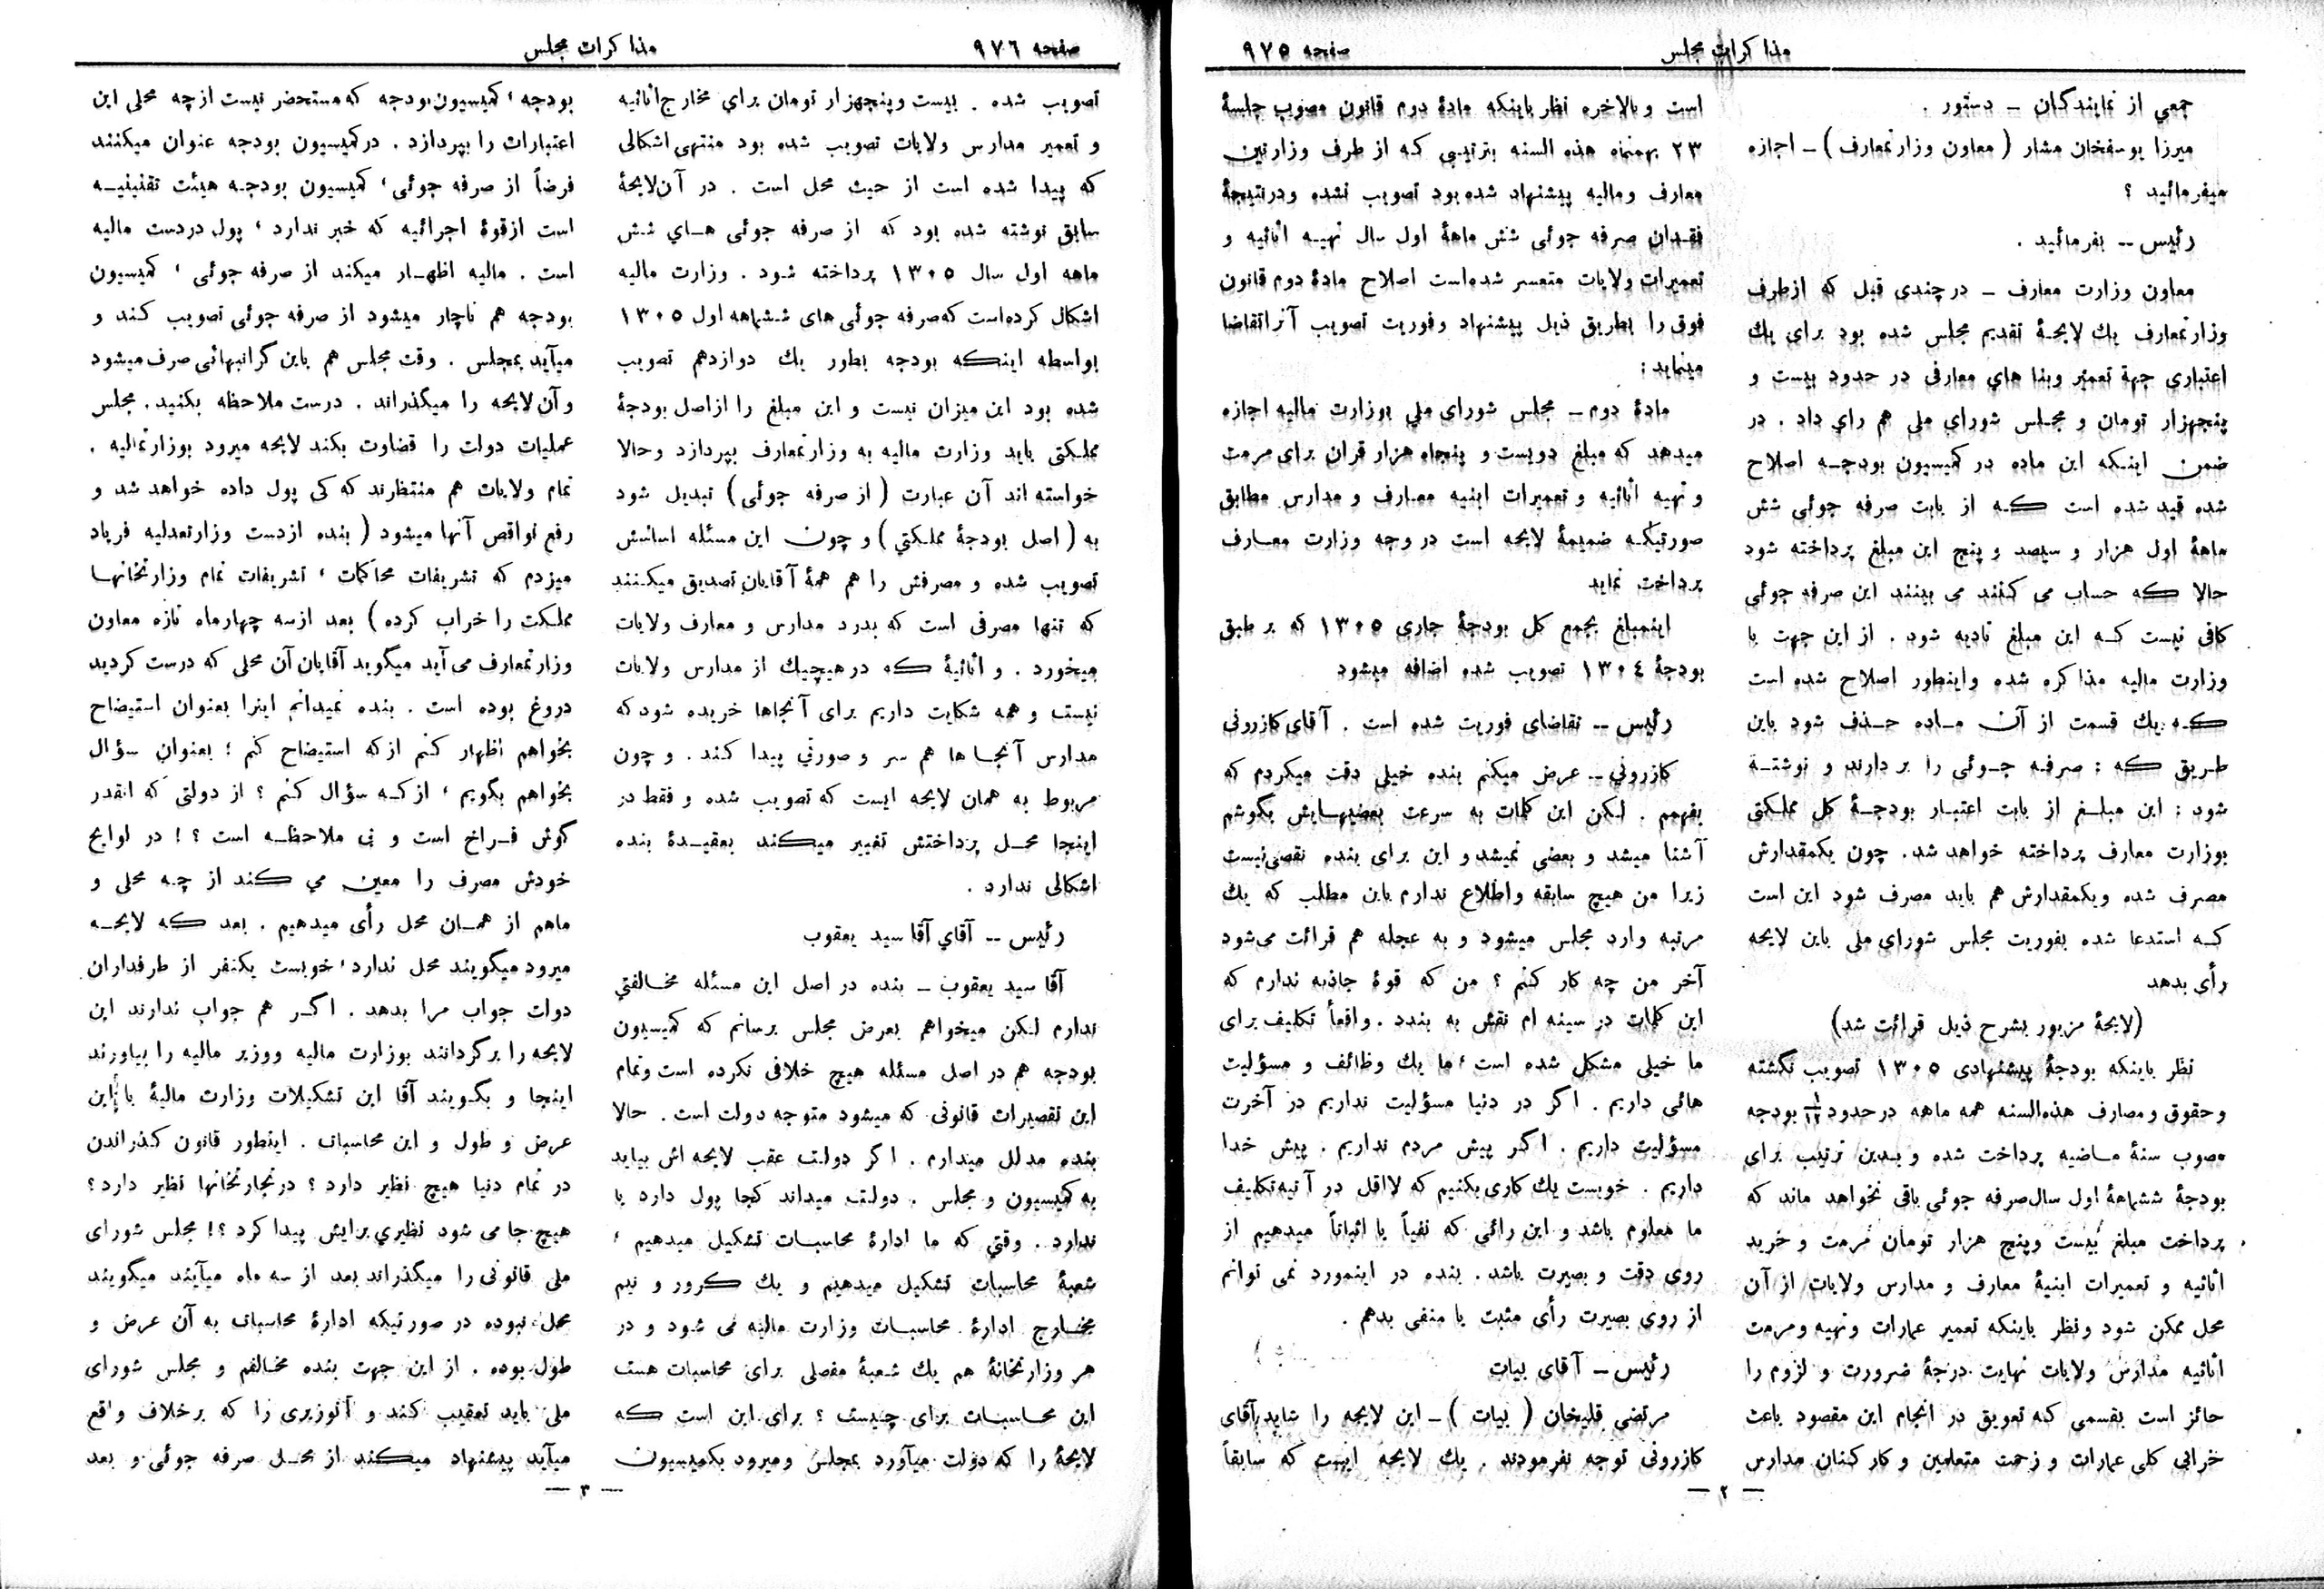 مذاکرات مجلس
صفحه ۹۷۵
جمعي از نمایندگان ــ دستور .
میرزا یوسفخان مشار ( معاون وزارتمعارف ) ــ اجازه
میفرمائید ؟
رئیس ــ بفرمائید .
معاون وزارت معارف ــ درچندی قبل که ازطرف
وزارتمعارف یك لایحهٔ تقدیم مجلس شده بود برای یك
اعتباری جهة تعمیر وبنا های معارفی در حدود بیست و
پنجهزار تومان و مجلس شورای ملی هم رای داد . در
ضمن اینکه این ماده در کمیسیون بودجه اصلاح
شده قید شده است که از بابت صرفه جوئی شش
ماههٔ اول هزار و سیصد و پنج این مبلغ پرداخته شود
حالا که حساب می کنند می بینند این صرفه جوئی
کافی نیست که این مبلغ تادیه شود . از این جهت با
وزارت مالیه مذاکره شده واینطور اصلاح شده است
که یك قسمت از آن ماده حذف شود باین
طریق که : صرفه جوئی را بردارند و نوشته
شود : این مبلغ از بابت اعتبار بودجهٔ کل مملکتی
بوزارت معارف پرداخته خواهد شد. چون یكمقدارش
مصرف شده ویكمقدارش هم باید مصرف شود این است
که استدعا شده بفوریت مجلس شورای ملی باین لایحه
رأی بدهد
(لایحهٔ مزبور بشرح ذیل قرائت شد)
نظر باینکه بودجهٔ پیشنهادی ۱۳۰۵ تصویب نگشته
وحقوق ومصارف هذه‌السنه همه ماهه درحدود ۱/۱۲ بودجه
مصوب سنهٔ ماضیه پرداخت شده و بدین ترتیب برای
بودجهٔ ششماههٔ اول سال‌صرفه جوئی باقی نخواهد ماند که
پرداخت مبلغ بیست وپنج هزار تومان مرمت و خرید
اثاثیه و تعمیرات ابنیهٔ معارف و مدارس ولایات از آن
محل ممکن شود ونظر باینکه تعمیر عمارات وتهیه ومرمت
اثاثیه مدارس ولایات نهایت درجهٔ ضرورت و لزوم را
حائز است بقسمی که تعویق در انجام این مقصود باعث
خرابی کلی عمارات و زحمت متعلمین و کارکنان مدارس
است وبالاخره نظر باینکه مادهٔ دوم قانون مصوب جلسهٔ
۲۳ بهمنماه هذه السنه بترتیبی که از طرف وزارتین
معارف ومالیه پیشنهاد شده‌بود تصویب نشده ودرنتیجهٔ
فقدان صرفه جوئی شش ماههٔ اول سال تهیه اثاثیه و
تعمیرات ولایات متعسر شده‌است اصلاح مادهٔ دوم قانون
فوق را بطریق ذیل پیشنهاد وفوریت تصویب آنراتقاضا
مینماید :
مادهٔ دوم ــ مجلس شورای ملي بوزارت مالیه اجازه
میدهد که مبلغ دویست و پنجاه هزار قران برای مرمت
و تهیه اثاثیه و تعمیرات ابنیه معارف و مدارس مطابق
صورتیکه ضمیمهٔ لایحه است در وجه وزارت معارف
پرداخت نماید
اینمبلغ بجمع کل بودجهٔ جاری ۱۳۰۵ که برطبق
بودجهٔ ۱۳۰٤ تصویب شده اضافه میشود
رئیس ــ تقاضای فوریت شده است . آقای‌کازرونی
کازروني ــ عرض میکنم بنده خیلی دقت میکردم که
بفهمم . لکن این کلمات به سرعت بعضیهایش بگوشم
آشنا میشد و بعضی نمیشد و این برای بنده نقصی‌نیست
زیرا من هیچ سابقه واطلاع ندارم باین مطلب که یك
مرتبه وارد مجلس میشود و به عجله هم قرائت می‌شود
آخر من چه کار کنم ؟ من که قوهٔ جاذبه ندارم که
این کلمات در سینه ام نقش به بندد . واقعاً تکلیف برای
ما خیلی مشکل شده است ، ما یك وظائف و مسؤلیت
هائی داریم . اگر در دنیا مسؤلیت نداریم در آخرت
مسؤلیت داریم . اگر پیش مردم نداریم . پیش خدا
داریم . خوبست یك کاری بکنیم که لااقل در آتیه‌تکلیف
ما معلوم باشد و این رائی که نفیاً یا اثباتاً میدهیم از
روی دقت و بصیرت باشد . بنده در اینمورد نمی توانم
از روی بصیرت رأی مثبت یا منفی بدهم .
رئیس ــ آقای بیات
مرتضی قلیخان ( بیات ) ــ این لایحه را شاید آقای
کازرونی توجه نفرمودند . یك لایحه ایست که سابقاً
— ۲ —
صفحه ۹۷٦
مذاکرات مجلس
تصویب شده . بیست وپنجهزار تومان برای مخارج‌اثاثیه
و تعمیر مدارس ولایات تصویب شده بود منتهی اشکالی
که پیدا شده است از حیث محل است . در آن‌لایحهٔ
سابق نوشته شده بود که از صرفه جوئی های شش
ماهه اول سال ۱۳۰۵ پرداخته شود . وزارت مالیه
اشکال کرده‌است که‌صرفه جوئی های ششماهه اول ۱۳۰۵
بواسطه اینکه بودجه بطور یك دوازدهم تصویب
شده بود این میزان نیست و این مبلغ را ازاصل بودجهٔ
مملکتی باید وزارت مالیه به وزارتمعارف بپردازد وحالا
خواسته اند آن عبارت ( از صرفه جوئی ) تبدیل شود
به ( اصل بودجهٔ مملکتي ) و چون این مسئله اساسش
تصویب شده و مصرفش را هم همهٔ آقایان تصدیق میکنند
که تنها مصرفی است که بدرد مدارس و معارف ولایات
میخورد . و اثاثیهٔ که درهیچیك از مدارس ولایات
نیست و همه شکایت داریم برای آنجاها خریده شودکه
مدارس آنجا ها هم سر و صورتي پیدا کند . و چون
مربوط به همان لایحه ایست که تصویب شده و فقط در
اینجا محل پرداختش تغییر میکند بعقیدهٔ بنده
اشکالی ندارد .
رئیس ــ آقاي آقا سید یعقوب
آقا سید یعقوب ــ بنده در اصل این مسئله مخالفتي
ندارم لکن میخواهم بعرض مجلس برسانم که کمیسیون
بودجه هم در اصل مسئله هیچ خلافی نکرده است وتمام
این تقصیرات قانونی که میشود متوجه دولت است . حالا
بنده مدلل میدارم . اگر دولت عقب لایحه اش بیاید
به کمیسیون و مجلس . دولت میداند کجا پول دارد یا
ندارد . وقتي که ما ادارهٔ محاسبات تشکیل میدهیم ،
شعبهٔ محاسبات تشکیل میدهیم و یك کرور و نیم
مخارج ادارهٔ محاسبات وزارت مالیه می شود و در
هر وزارتخانهٔ هم یك شعبهٔ مفصلی برای محاسبات هست
این محاسبات برای چیست ؟ برای این است که
لایحهٔ را که دولت میآورد بمجلس ومیرود بکمیسیون
بودجه ، کمیسیون‌بودجه که مستحضر نیست ازچه محلی این
اعتبارات را بپردازد . درکمیسیون بودجه عنوان میکنند
فرضاً از صرفه جوئی ، کمیسیون بودجه هیئت تقنینیه
است ازقوهٔ اجرائیه که خبر ندارد ، پول دردست مالیه
است . مالیه اظهار میکند از صرفه جوئی ، کمیسیون
بودجه هم ناچار میشود از صرفه جوئی تصویب کند و
میآید بمجلس . وقت مجلس هم باین گرانبهائی صرف‌میشود
و آن لایحه را میگذراند . درست ملاحظه بکنید . مجلس
عملیات دولت را قضاوت بکند لایحه میرود بوزارتمالیه .
تمام ولایات هم منتظرند که کی پول داده خواهد شد و
رفع نواقص آنها میشود ( بنده ازدست وزارتعدلیه فریاد
میزدم که تشریفات محاکمات ، تشریفات تمام وزارتخانها
مملکت را خراب کرده ) بعد ازسه چهارماه تازه معاون
وزارتمعارف می آید میگوید آقایان آن محلی که درست کردید
دروغ بوده است . بنده نمیدانم اینرا بعنوان استیضاح
بخواهم اظهار کنم ازکه استیضاح کنم ؛ بعنوان سؤال
بخواهم بگویم ، ازکه سؤال کنم ؟ از دولتی که انقدر
گوش فراخ است و بی ملاحظه است ؟ ! در لوایح
خودش مصرف را معین می کند از چه محلی و
ماهم از همان محل رأی میدهیم . بعد که لایحه
میرود میگویند محل ندارد، خوبست یكنفر از طرفداران
دولت جواب مرا بدهد . اگر هم جواب ندارند این
لایحه را برگردانند بوزارت مالیه ووزیر مالیه را بیاورند
اینجا و بگویند آقا این تشکیلات وزارت مالیهٔ با این
عرض و طول و این محاسبات . اینطور قانون گذراندن
در تمام دنیا هیچ نظیر دارد ؟ درتجارتخانها نظیر دارد ؟
هیچ جا می شود نظیري برایش پیدا کرد ؟ ! مجلس شورای
ملی قانونی را میگذراند بعد از سه ماه میآیند میگویند
محل نبوده در صورتیکه ادارهٔ محاسبات به آن عرض و
طول بوده . از این جهت بنده مخالفم و مجلس شورای
ملی باید تعقیب کند و آنوزیری را که برخلاف واقع
میآید پیشنهاد میکند از محل صرفه جوئی و بعد
— ۳ —